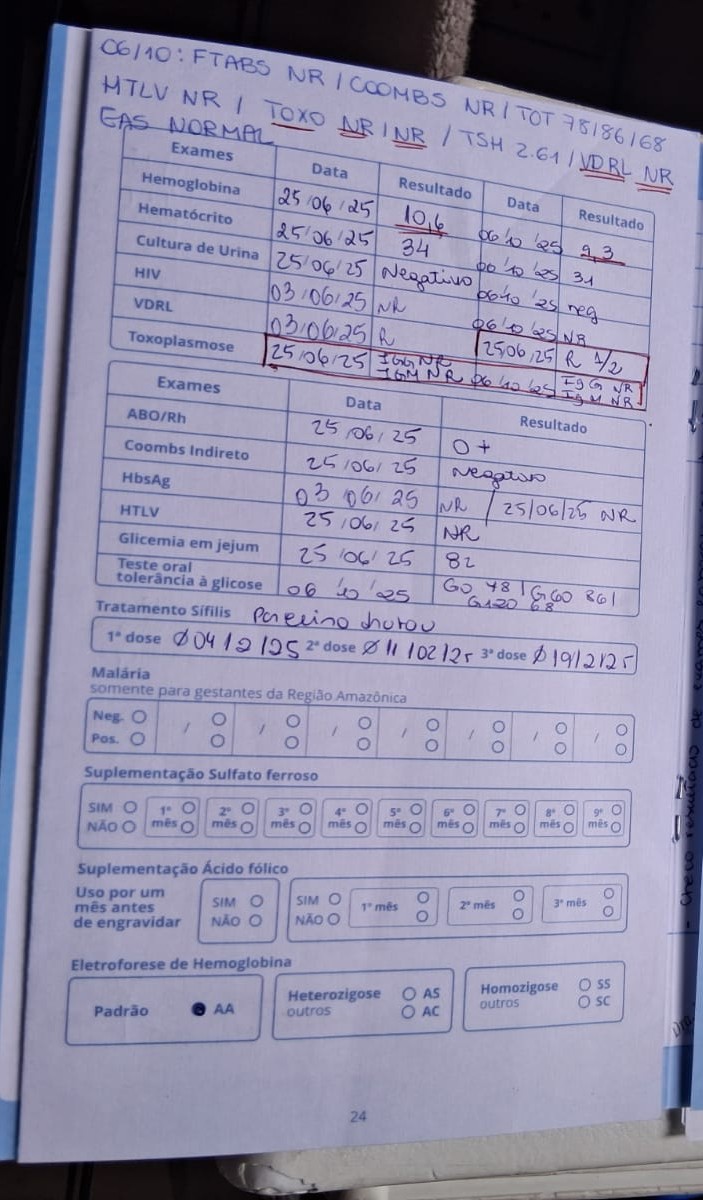 06/10: FTABS NR / COOMBS NR / TOT 78/86/68
HTLV NR / TOXO NR/NR / TSH 2.61 / VDRL NR
EAS NORMAL
Exames Data Resultado Data Resultado
Hemoglobina 25/06/25 10,6 06/10/25 9,3
Hematócrito 25/06/25 34 06/10/25 31
Cultura de Urina 25/06/25 Negativo 06/10/25 neg
HIV 03/06/25 NR 06/10/25 NR
VDRL 03/06/25 R 25/06/25 R 1/2
Toxoplasmose 25/06/25 IGG NR IGM NR 06/10/25 IgG NR IgM NR
Exames Data Resultado
ABO/Rh 25/06/25 O+
Coombs Indireto 25/06/25 Negativo
HbsAg 03/06/25 NR / 25/06/25 NR
HTLV 25/06/25 NR
Glicemia em jejum 25/06/25 82
Teste oral
tolerância à glicose 06/10/25 G0 78 | G60 86 |
G120 68
Tratamento Sífilis Parceiro tratou
1ª dose Ø 04/2/25 2ª dose Ø 11/02/25 3ª dose Ø 19/2/25
Malária
somente para gestantes da Região Amazônica
Neg. / / / / / / /
Pos.
Suplementação Sulfato ferroso
SIM 1º 2º 3º 4º 5º 6º 7º 8º 9º
NÃO mês mês mês mês mês mês mês mês mês
Suplementação Ácido fólico
Uso por um
mês antes
de engravidar
SIM
NÃO
SIM
NÃO
1º mês 2º mês 3º mês
Eletroforese de Hemoglobina
Padrão AA
Heterozigose AS
outros AC
Homozigose SS
outros SC
24